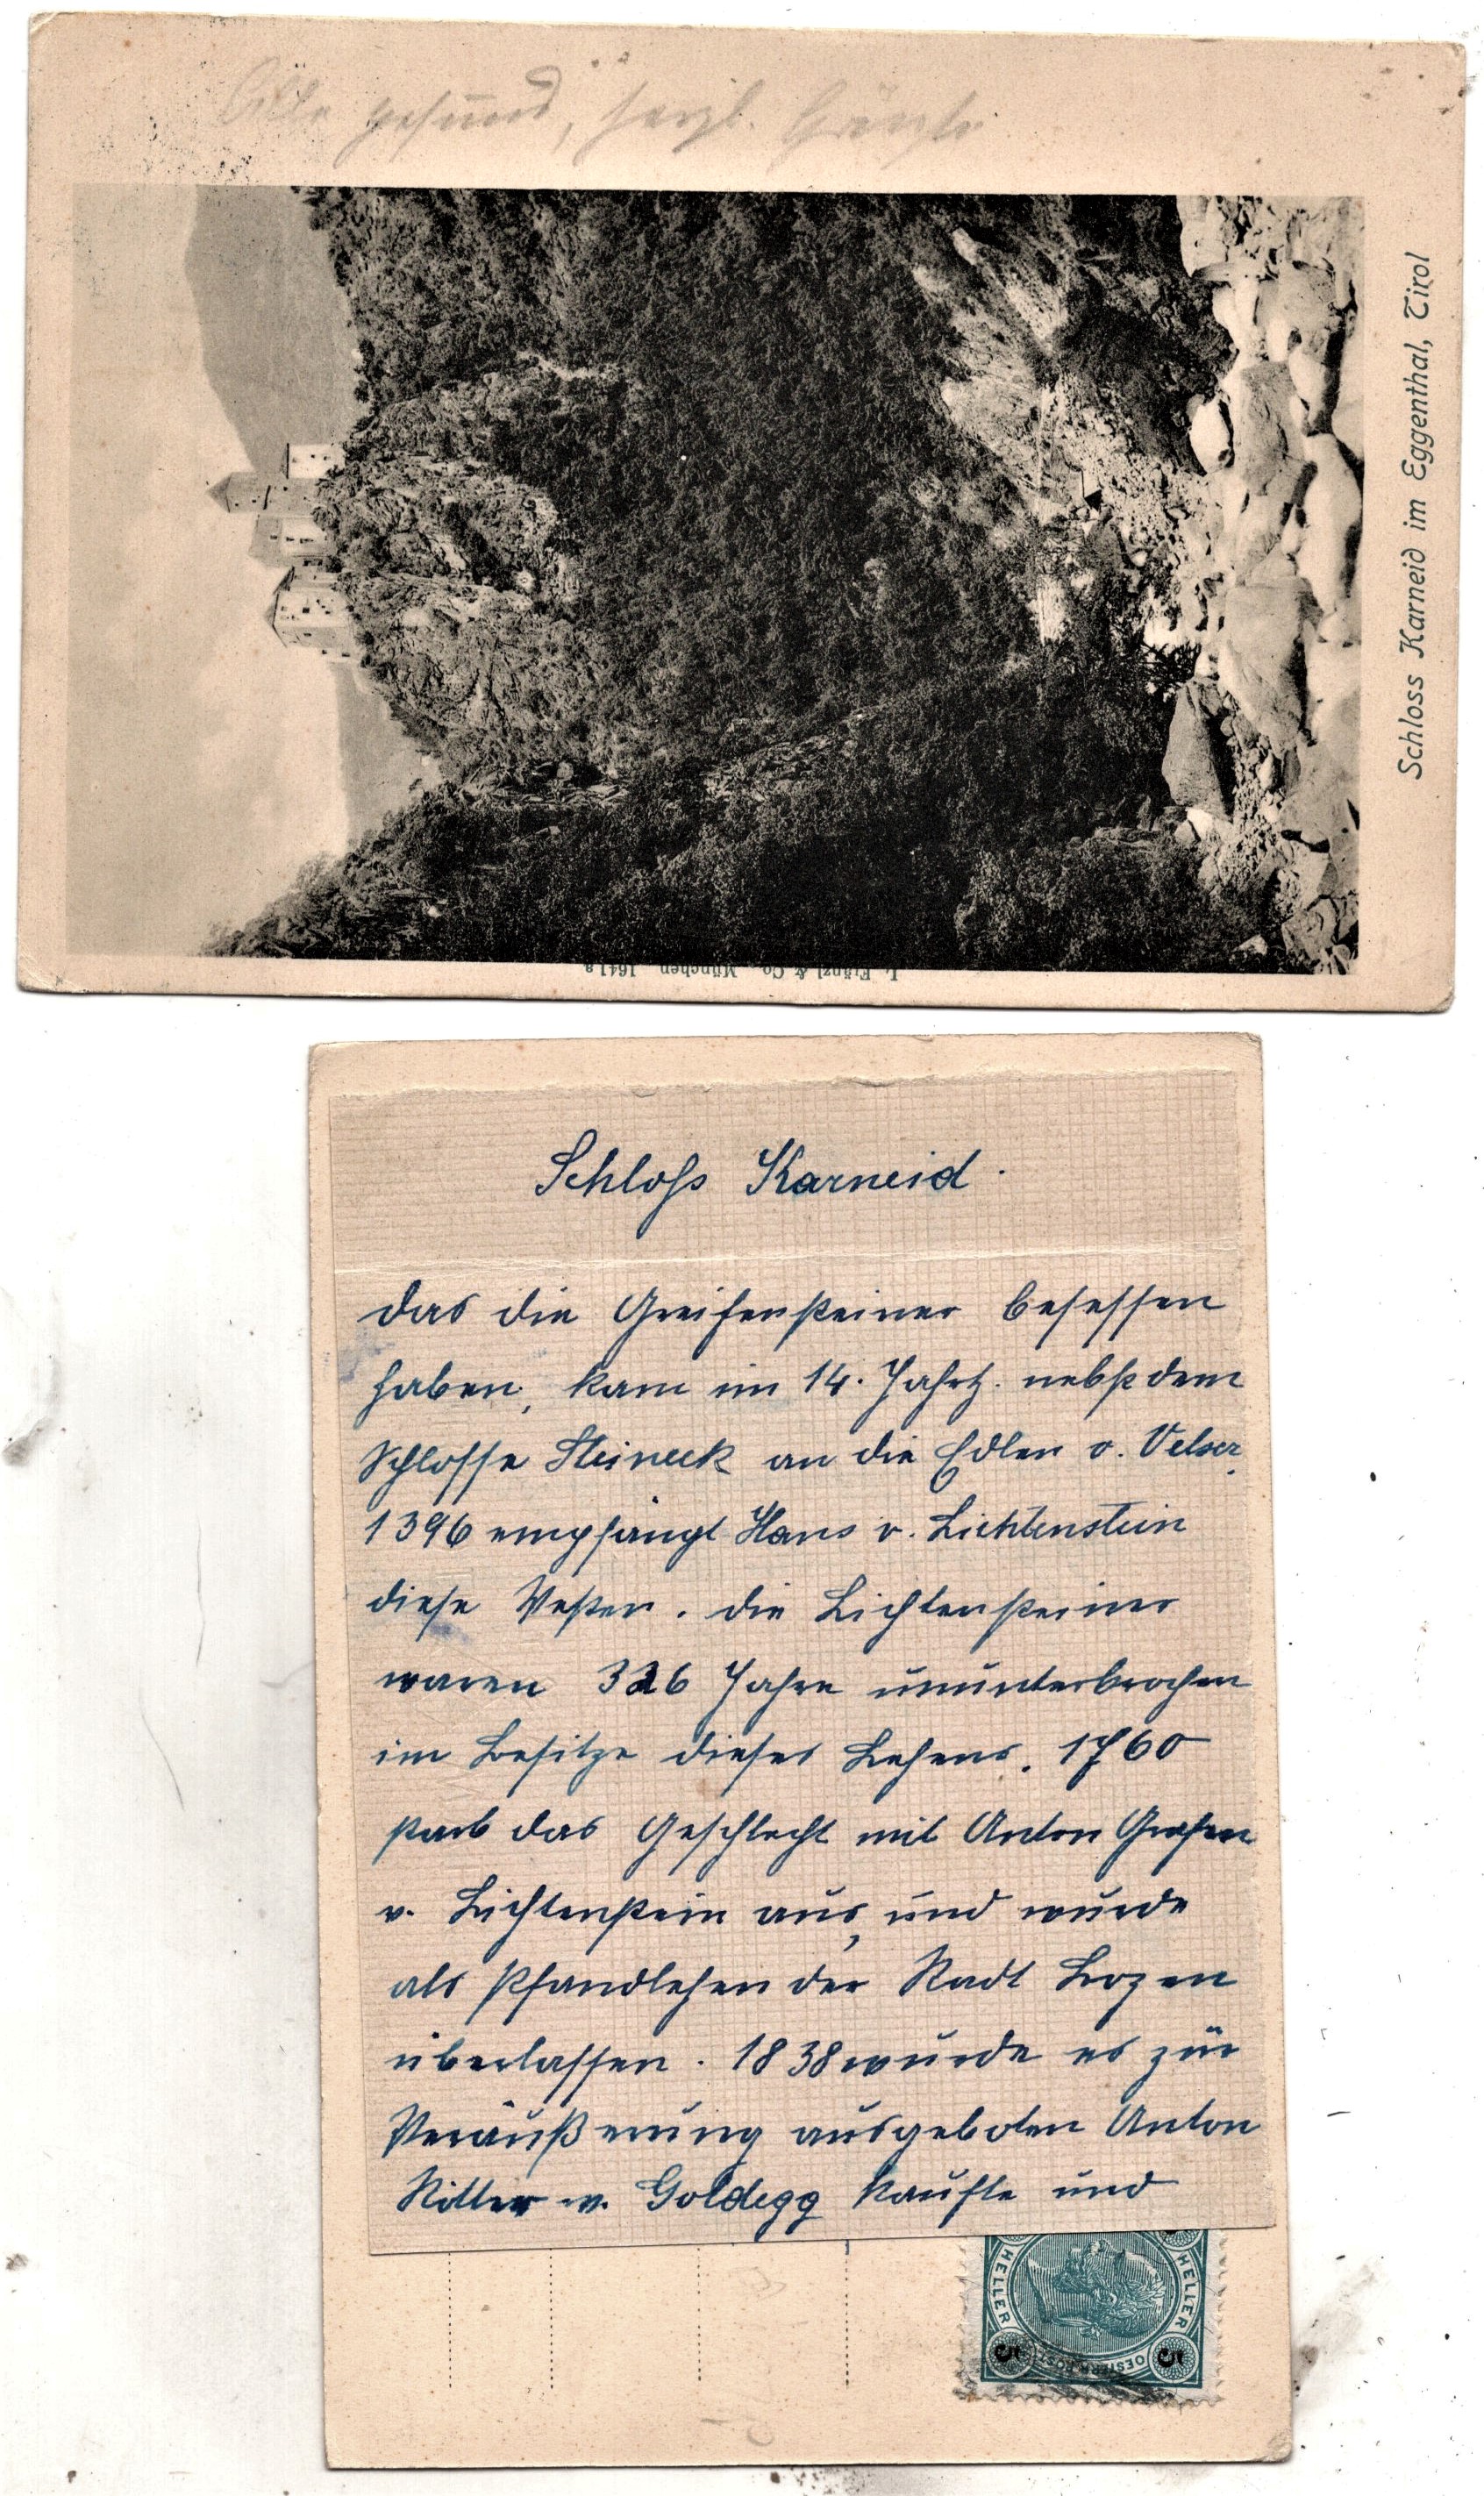 Alle gesund, herzl. Grüße
Schloss Karneid im Eggenthal, Tirol
München 1641a
Schloß Karneid.
das die Greifensteiner besessen
haben, kam im 14. Jahrh. nebst dem
Schlosse Steineck an die Edlen v. Velser
1396 empfängt Hans v. Lichtenstein
diese Vesten. die Lichtensteiner
waren 326 Jahre ununterbrochen
im Besitze dieses Lehens. 1760
starb das Geschlecht mit Anton Grafen
v. Lichtenstein aus, und wurde
als Pfandlehen der Stadt Bozen
überlassen. 1838 wurde es zur
Veräußerung ausgeboten Anton
Ritter v. Goldegg kaufte und
HELLER
HELLER
5
OESTERR. POST
5